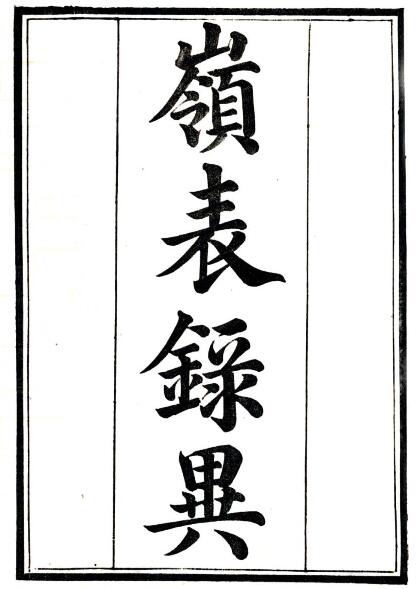 嶺表錄異